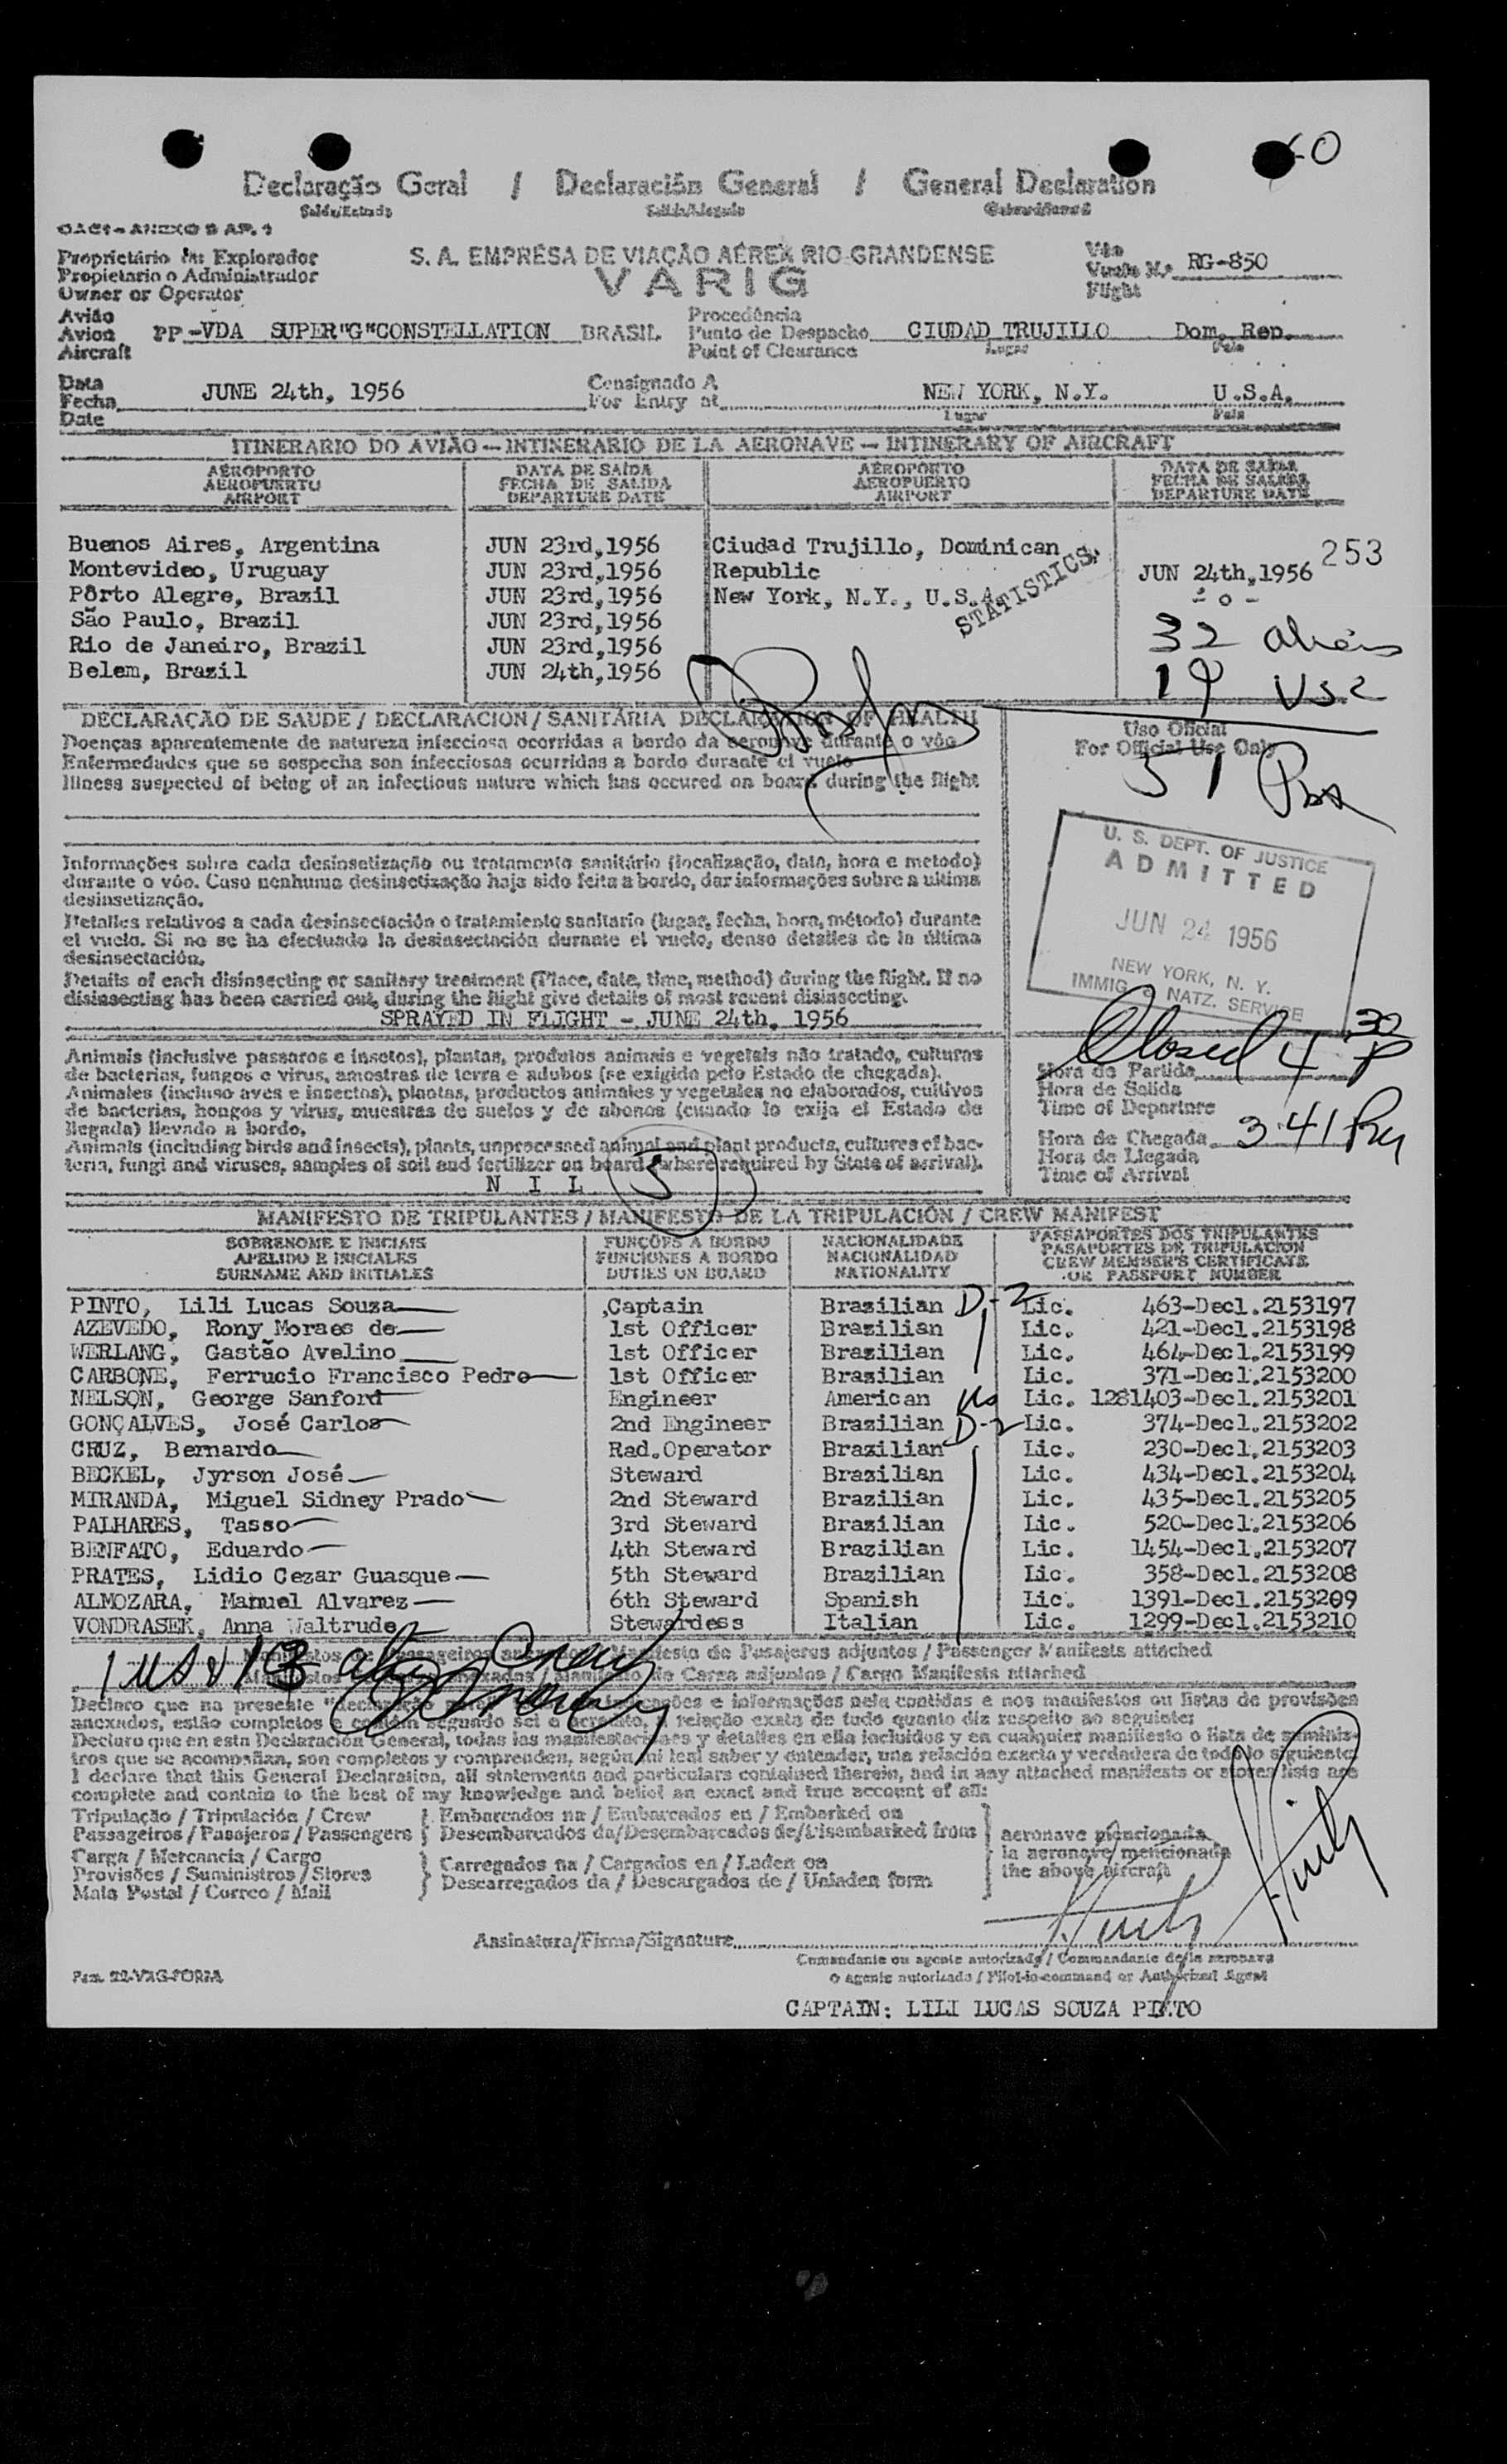 Declaração Geral / Declaración General / General Declaration
OACI - ANEXO 9 AP. 1
Proprietário ou Explorador
Propietario o Administrador
Owner or Operator
S. A. EMPRÊSA DE VIAÇÃO AÉREA RIO GRANDENSE
VARIG
Vôo
Vuelo N.º RG-850
Flight
Avião
Avion PP-VDA SUPER"G"CONSTELLATION BRASIL
Aircraft
Procedência
Punto de Despacho CIUDAD TRUJILLO Dom. Rep.
Point of Clearance Lugar País
Data
Fecha JUNE 24th, 1956
Date
Consignado A
For Entry at NEW YORK, N.Y. U.S.A.
Lugar País
ITINERARIO DO AVIÃO - INTINERARIO DE LA AERONAVE - INTINERARY OF AIRCRAFT
AÉROPORTO
AEROPUERTO
AIRPORT
DATA DE SAÍDA
FECHA DE SALIDA
DEPARTURE DATE
AÉROPORTO
AEROPUERTO
AIRPORT
DATA DE SAÍDA
FECHA DE SALIDA
DEPARTURE DATE
Buenos Aires, Argentina JUN 23rd,1956
Montevideo, Uruguay JUN 23rd,1956
Pôrto Alegre, Brazil JUN 23rd,1956
São Paulo, Brazil JUN 23rd,1956
Rio de Janeiro, Brazil JUN 23rd,1956
Belem, Brazil JUN 24th,1956
Ciudad Trujillo, Dominican
Republic JUN 24th,1956
New York, N.Y., U.S.A. - o -
253
STATISTICS.
32 aliens
19 USC
51
DECLARAÇÃO DE SAUDE / DECLARACION / SANITÁRIA DECLARATION OF HEALTH
Doenças aparentemente de natureza infecciosa ocorridas a bordo da aeronave durante o vôo
Enfermedades que se sospecha son infecciosas ocurridas a bordo durante el vuelo
Illness suspected of being of an infectious nature which has occured on board during the flight
Uso Oficial
For Official Use Only
U. S. DEPT. OF JUSTICE
ADMITTED
JUN 24 1956
NEW YORK, N. Y.
IMMIG. & NATZ. SERVICE
Informações sobre cada desinsetização ou tratamento sanitário (localização, data, hora e metodo)
durante o vôo. Caso nenhuma desinsetização haja sido feita a bordo, dar informações sobre a ultima
desinsetização.
Detalles relativos a cada desinsectación o tratamiento sanitario (lugar, fecha, hora, método) durante
el vuelo. Si no se ha efectuado la desinsectación durante el vuelo, denso detalles de la última
desinsectación.
Details of each disinsecting or sanitary treatment (Place, date, time, method) during the flight. If no
disinsecting has been carried out, during the flight give details of most recent disinsecting.
SPRAYED IN FLIGHT - JUNE 24th, 1956
Animais (inclusive passaros e insetos), plantas, produtos animais e vegetais não tratado, culturas
de bacterias, fungos e virus, amostras de terra e adubos (se exigido pelo Estado de chegada).
Animales (incluso aves e insectos), plantas, productos animales y vegetales no elaborados, cultivos
de bacterias, hongos y virus, muestras de suelos y de abonos (cuando lo exija el Estado de
llegada) llevado a bordo.
Animals (including birds and insects), plants, unprocessed animal and plant products, cultures of bac-
teria, fungi and viruses, samples of soil and fertilizer on board (where required by State of arrival).
N I L 5
Closed 4 30 P
Hora de Partida
Hora de Salida
Time of Departure
Hora de Chegada 3:41 PM
Hora de Llegada
Time of Arrival
MANIFESTO DE TRIPULANTES / MANIFESTO DE LA TRIPULACIÓN / CREW MANIFEST
SOBRENOME E INICIAIS
APELIDO E INICIALES
SURNAME AND INITIALES
FUNÇÕES A BORDO
FUNCIONES A BORDO
DUTIES ON BOARD
NACIONALIDADE
NACIONALIDAD
NATIONALITY
PASSAPORTES DOS TRIPULANTES
PASAPORTES DE TRIPULACION
CREW MEMBER'S CERTIFICATE
OR PASSPORT NUMBER
PINTO, Lili Lucas Souza Captain Brazilian D-2 Lic. 463-Decl.2153197
AZEVEDO, Rony Moraes de 1st Officer Brazilian Lic. 421-Decl.2153198
WERLANG, Gastão Avelino 1st Officer Brazilian Lic. 464-Decl.2153199
CARBONE, Ferrucio Francisco Pedro 1st Officer Brasilian Lic. 371-Decl.2153200
NELSON, George Sanford Engineer American US Lic. 1281403-Decl.2153201
GONÇALVES, José Carlos 2nd Engineer Brazilian D-2 Lic. 374-Decl.2153202
CRUZ, Bernardo Rad.Operator Brazilian Lic. 230-Decl.2153203
BECKEL, Jyrson José Steward Brazilian Lic. 434-Decl.2153204
MIRANDA, Miguel Sidney Prado 2nd Steward Brazilian Lic. 435-Decl.2153205
PALHARES, Tasso 3rd Steward Brazilian Lic. 520-Decl.2153206
BENFATO, Eduardo 4th Steward Brazilian Lic. 1454-Decl.2153207
PRATES, Lidio Cezar Guasque 5th Steward Brazilian Lic. 358-Decl.2153208
ALMOZARA, Manuel Alvarez 6th Steward Spanish Lic. 1391-Decl.2153209
VONDRASEK, Anna Waltrude Stewardess Italian Lic. 1299-Decl.2153210
Manifesto de Pasajeros adjuntos / Passenger Manifests attached
Manifesto de Carga adjuntos / Cargo Manifests attached
Declaro que na presente e informações nela contidas e nos manifestos ou listas de provisões
anexados, estão completos e contém segundo sei e acredito, a relação exata de tudo quanto diz respeito ao seguinte:
Declaro que en esta Declaración General, todas las manifestaciones y detalles en ella incluidos y en cualquier manifiesto o lista de suminis-
tros que se acompañan, son completos y comprenden, según mi leal saber y entender, una relación exacta y verdadera de todo lo siguiente:
I declare that this General Declaration, all statements and particulars contained therein, and in any attached manifests or stores lists are
complete and contain to the best of my knowledge and belief an exact and true account of all:
Tripulação / Tripulación / Crew
Passageiros / Pasajeros / Passengers
Embarcados na / Embarcados en / Embarked on
Desembarcados da/Desembarcados de/Disembarked from
Carga / Mercancia / Cargo
Provisões / Suministros / Stores
Mala Postal / Correo / Mail
Carregados na / Cargados en / Laden on
Descarregados da / Descargados de / Unladen form
aeronave mencionada
la aeronave mencionada
the above aircraft
Assinatura/Firma/Signature
Comandante ou agente autorizado / Commandante de la aeronave
o agente autorizado / Pilot-in-command or Authorized Agent
CAPTAIN: LILI LUCAS SOUZA PINTO